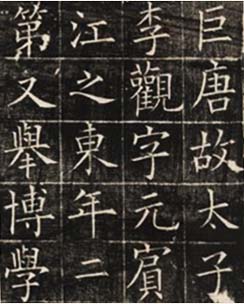 巨唐故太子
李觀字元賓
江之東年二
第又舉博學